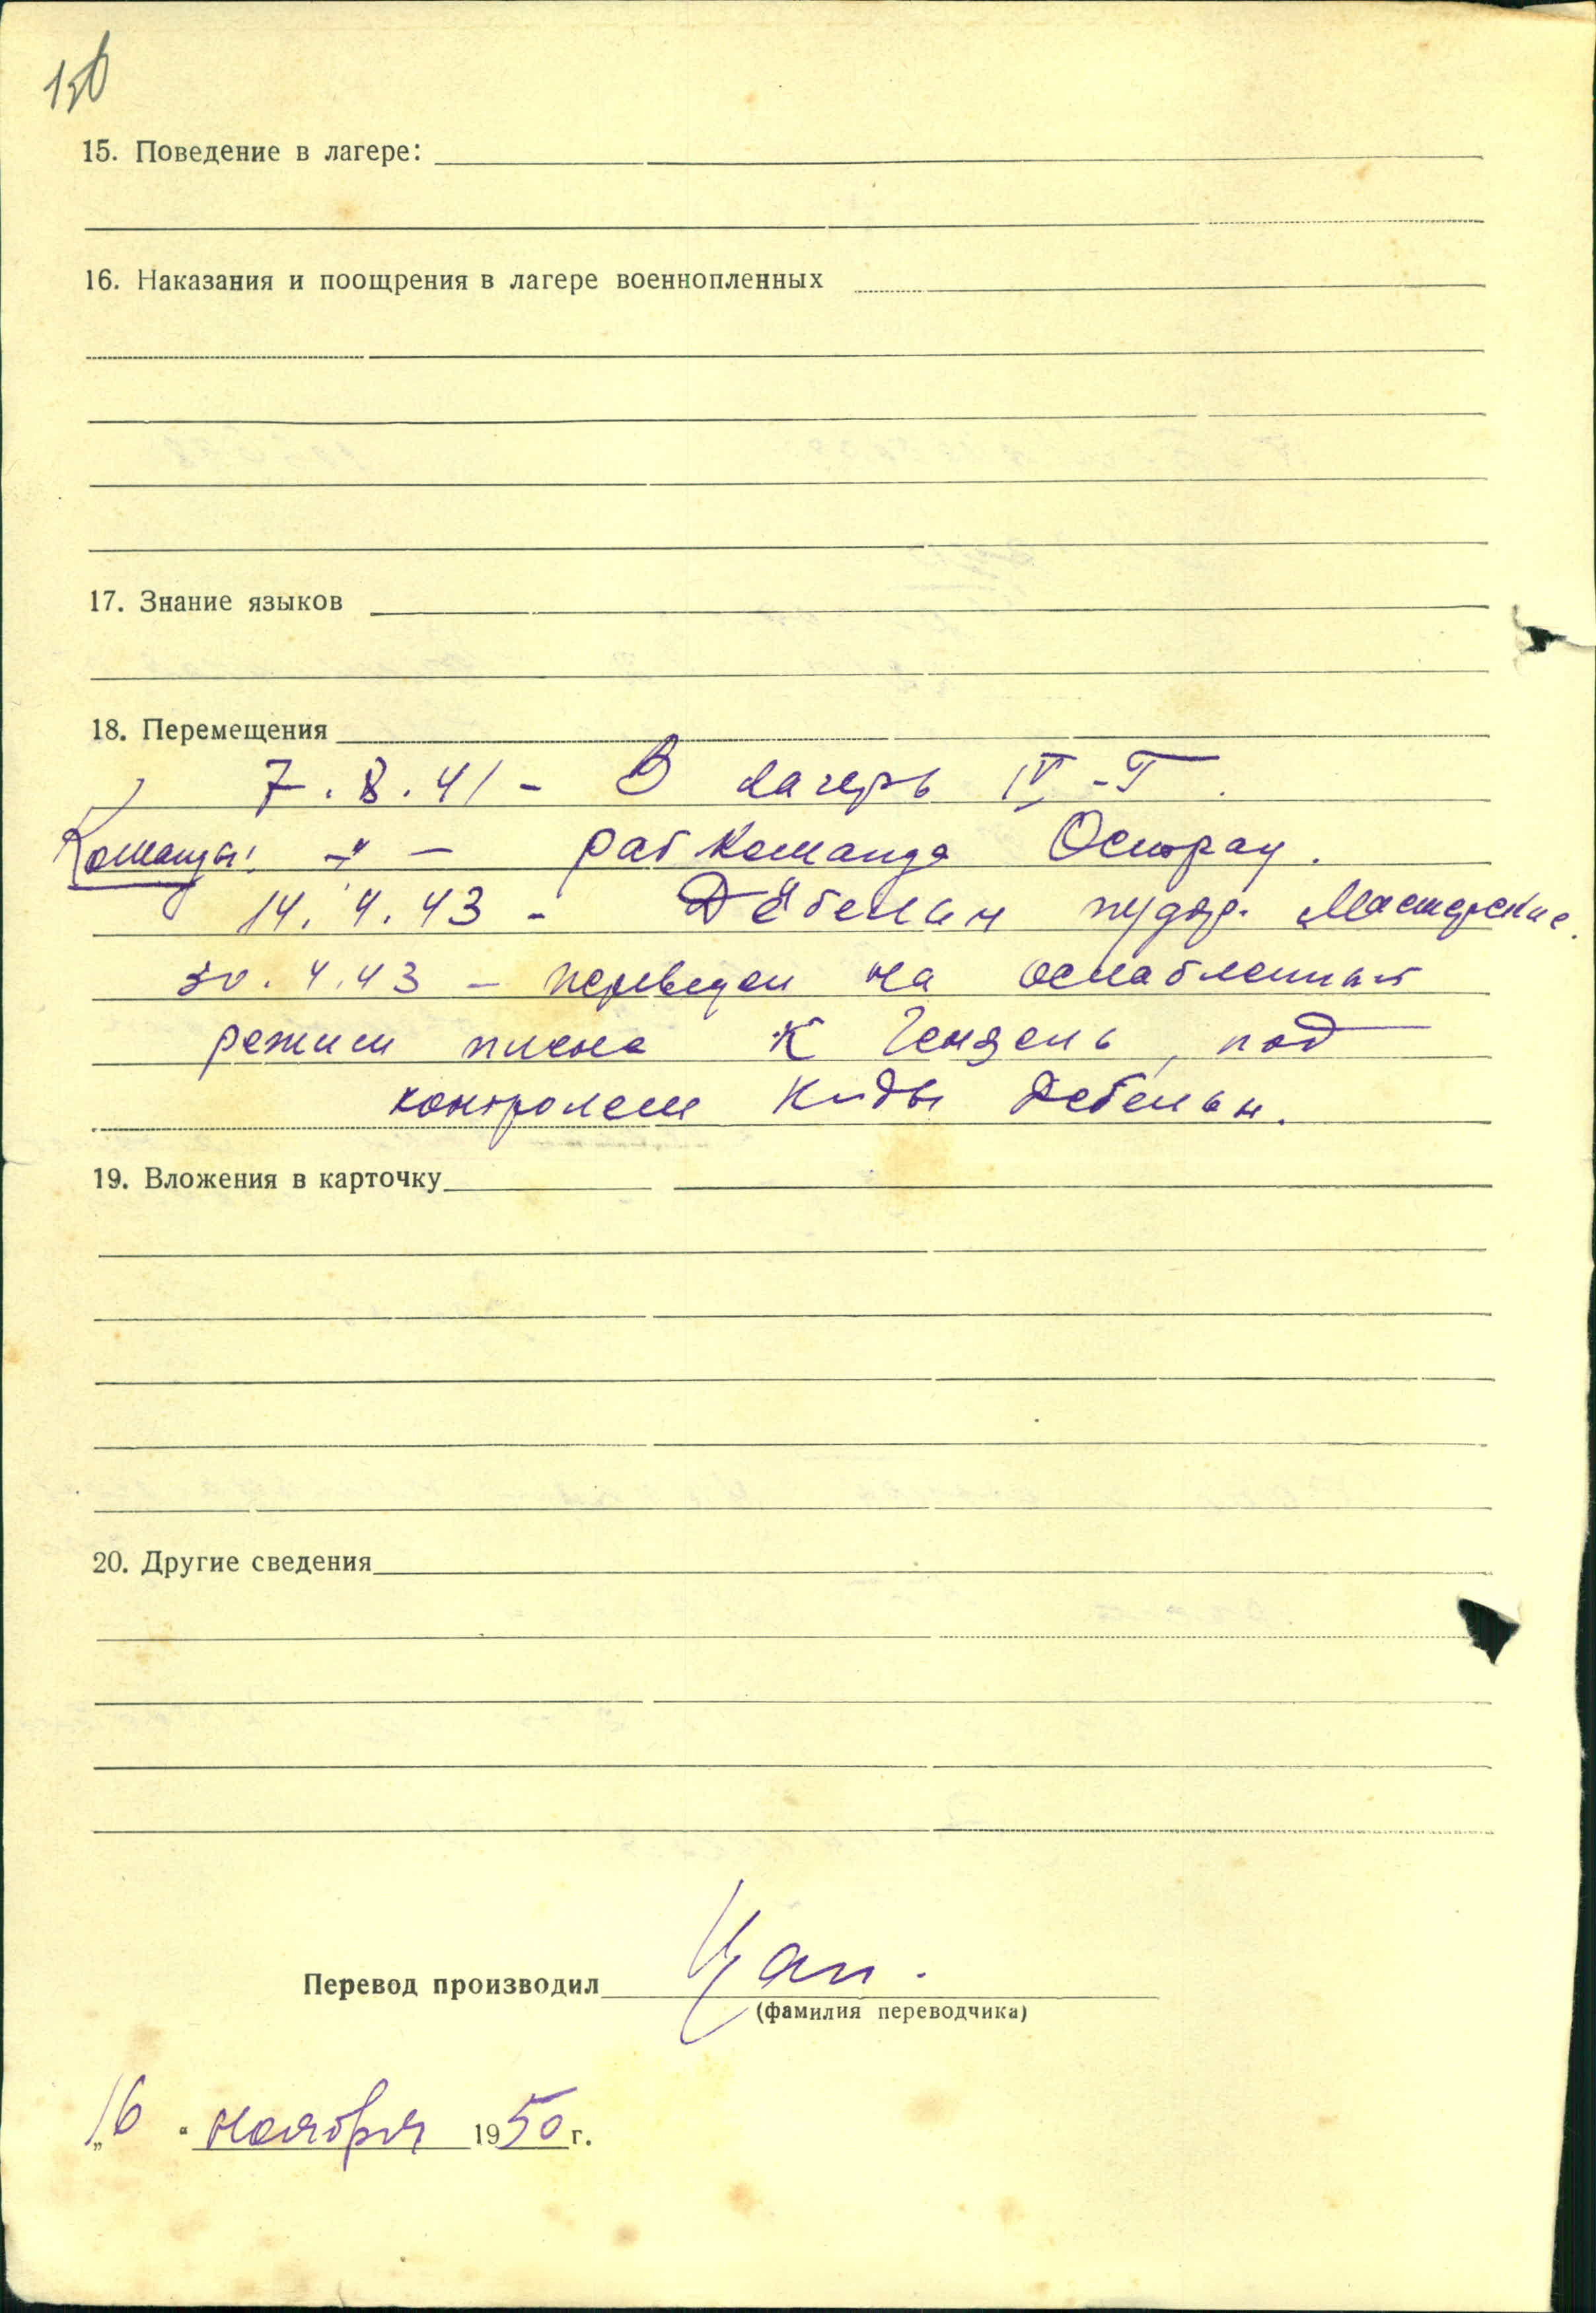 150
15. Поведение в лагере:
16. Наказания и поощрения в лагере военнопленных
17. Знание языков
18. Перемещения
7.8.41 - В лагерь IV-Г.
Команды: -"- раб команда Острау.
14.4.43 - Дёбельн мастерские.
30.4.43 - переведен на ослабленный
режим плена к Гензель, под
контролем к-ды Дебельн.
19. Вложения в карточку
20. Другие сведения
Перевод производил
(фамилия переводчика)
„16“ ноября 1950 г.